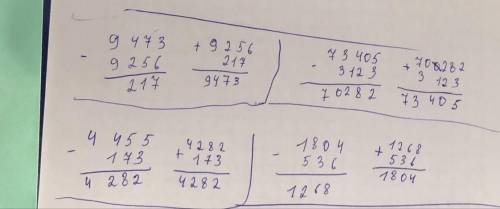 - 9 473
9 256
217
+ 9256
217
9473
- 73405
3123
70282
+ 70282
3 123
73 405
- 4 455
173
4 282
+ 4282
173
4282
- 1804
536
1268
+ 1268
536
1804